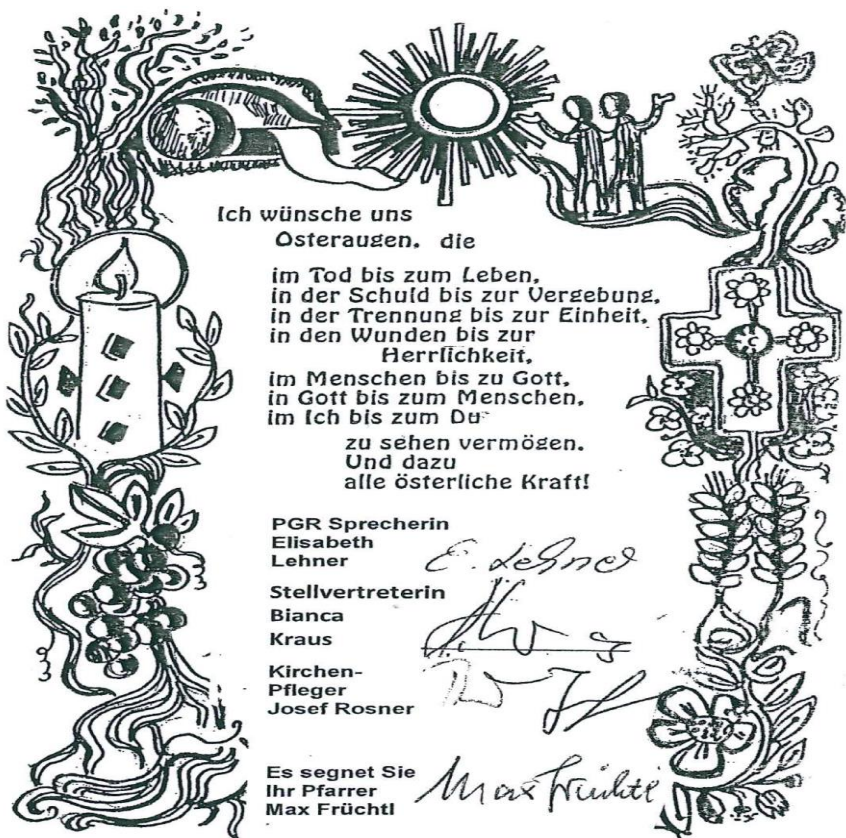 Ich wünsche uns
Osteraugen, die
im Tod bis zum Leben,
in der Schuld bis zur Vergebung,
in der Trennung bis zur Einheit,
in den Wunden bis zur
Herrlichkeit,
im Menschen bis zu Gott,
in Gott bis zum Menschen,
im Ich bis zum Du
zu sehen vermögen.
Und dazu
alle österliche Kraft!
PGR Sprecherin
Elisabeth
Lehner E. Lehner
Stellvertreterin
Bianca
Kraus
Kirchen-
Pfleger
Josef Rosner
Es segnet Sie
Ihr Pfarrer Max Früchtl
Max Früchtl